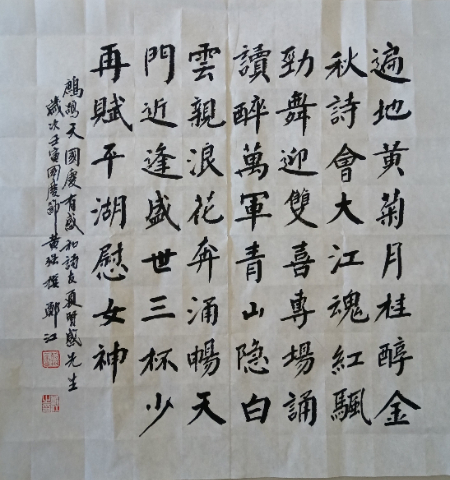 遍地黄菊月桂醇金
秋詩會大江魂紅颿
勁舞迎雙喜專場誦
讀醉萬軍青山隐白
雲親浪花奔涌暢天
門近逢盛世三杯少
再賦平湖慰女神
鷓鴣天國慶有感和詩友夏賢感先生
歲次壬寅國慶節黄 鄭江